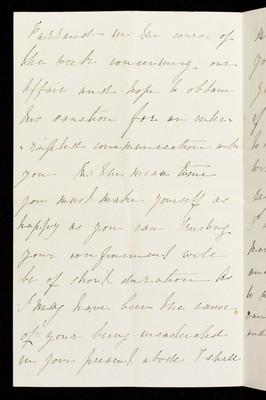 Farrhand in the course of
the week concerning our
affair and hope to obtain
his sanction for an inter-
-rupted communication with
you In the mean time
you must make yourself as
happy as you can trusting
your confinement will
be of short duration As
I may have been the cause
of your being incarcerated
in your present abode I shall